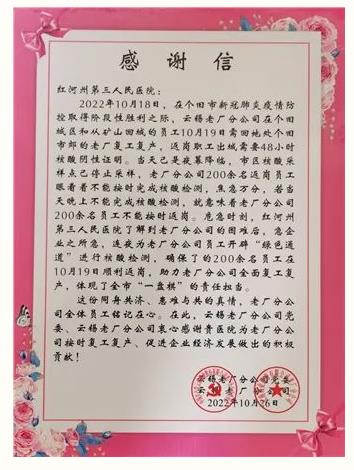 感谢信
红河州第三人民医院：
2022年10月18日，在个旧市新冠肺炎疫情防
控取得阶段性胜利之际，云锡老厂分公司在个旧
城区和从矿山回城的员工10月19日需回地处个旧
市郊的老厂复工复产，返岗职工出城需要48小时
核酸阴性证明。当天已是夜幕降临，市区核酸采
样点已停止采样，老厂分公司200余名返岗员工
眼看着不能按时完成核酸检测，焦急万分，若当
天晚上不能完成核酸检测，就意味着老厂分公司
200余名员工不能按时返岗。危急时刻，红河州
第三人民医院了解到老厂分公司的困难后，急
企业之所急，连夜为老厂分公司员工开辟“绿色通
道”进行核酸检测，确保了的200余名员工在
10月19日顺利返岗，助力老厂分公司全面复工复
产，体现了全市“一盘棋”的责任担当。
这份同舟共济、患难与共的真情，老厂分公
司全体员工铭记在心。在此，云锡老厂分公司党
委、云锡老厂分公司衷心感谢贵医院为老厂分公
司按时复工复产、促进企业经济发展做出的积极
贡献！
云锡老厂分公司党委
云锡老厂分公司
2022年10月26日